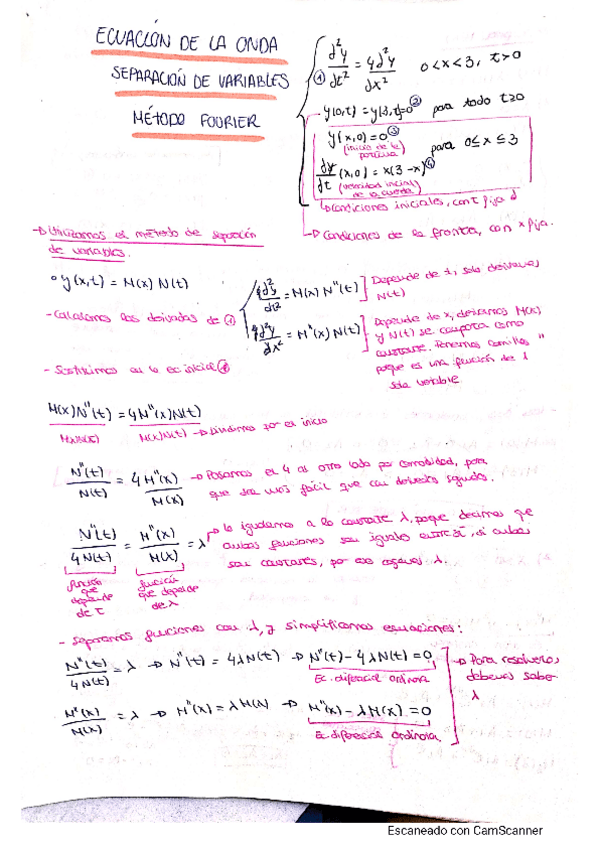 ECUACIÓN DE LA ONDA
SEPARACIÓN DE VARIABLES
MÉTODO FOURIER
① d²y/dt² = 4 d²y/dx² 0<x<3, t>0
y(0,t) = y(3,t)=0 ② para todo t≥0
y(x,0) = 0 ③
(inicio de la
para 0≤x≤3
dy/dt (x,0) = x(3-x) ④
(velocidad inicial
de la cuerda)
↳ Condiciones iniciales, con t fija
↳ Condiciones de la frontera, con x fija.
→ Utilizamos el método de separación
de variables.
° y(x,t) = M(x) N(t)
- Calculamos las derivadas de ①
d²y/dt² = M(x) N''(t)] Depende de t, solo derivamos
N(t)
d²y/dx² = M''(x) N(t)] Depende de x, derivamos M(x)
y N(t) se comporta como
constante. Ponemos comillas ''
porque es una función de 1
sola variable
- Sustituimos en la ec inicial ①
M(x)N''(t) = 4M''(x)N(t)
M(x)N(t) M(x)N(t) → Dividimos por el inicio
N''(t)/N(t) = 4 M''(x)/M(x) → Pasamos el 4 al otro lado por comodidad, para
que sea más fácil que
N''(t)/4N(t) = M''(x)/M(x) = λ → lo igualamos a la constante λ, porque decimos que
ambas funciones son iguales entre sí, si ambas
son constantes, por eso λ.
función que depende de t
función que depende de λ
- Separamos funciones con λ, y simplificamos ecuaciones:
N''(t)/4N(t) = λ → N''(t) = 4λN(t) → N''(t) - 4λN(t) = 0
Ec. diferencial ordinaria
→ Para resolverlos
debemos saber
λ
M''(x)/M(x) = λ → M''(x) = λM(x) → M''(x) - λM(x) = 0
Ec. diferencial ordinaria
Escaneado con CamScanner